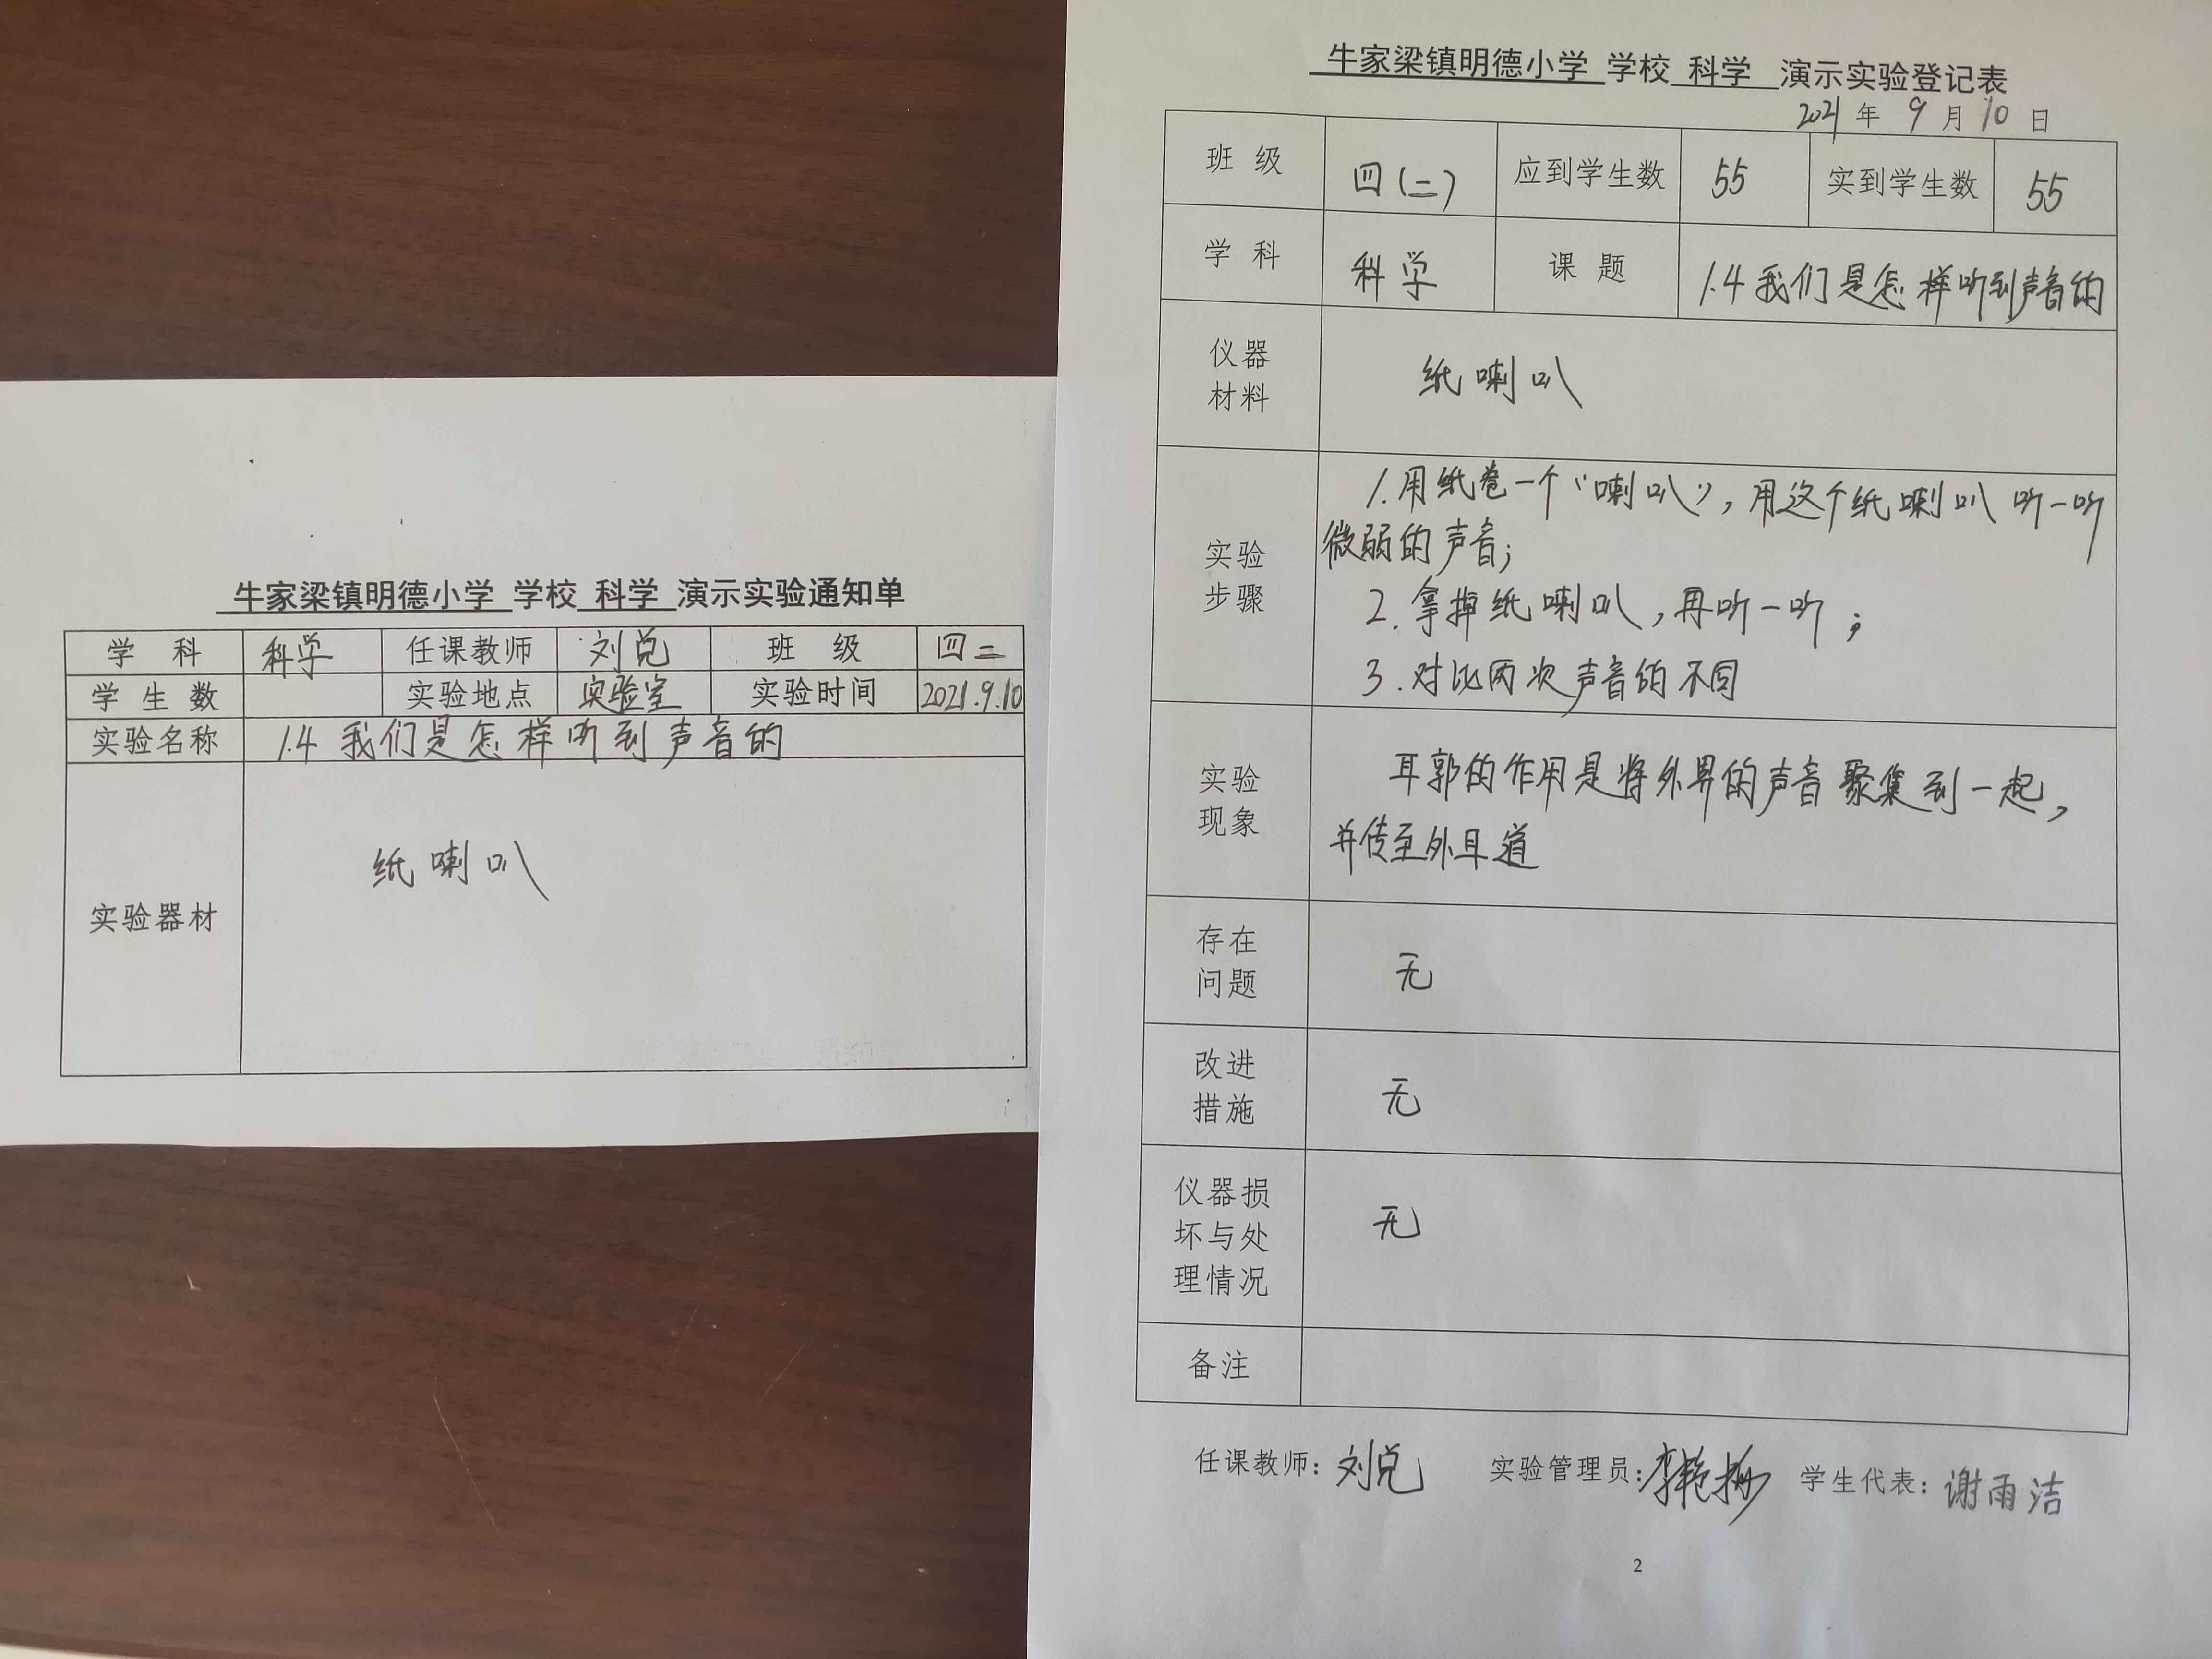 牛家梁镇明德小学 学校 科学 演示实验通知单
学 科 科学 任课教师 刘兑 班 级 四二
学 生 数 实验地点 实验室 实验时间 2021.9.10
实验名称 1.4 我们是怎样听到声音的
实验器材 纸喇叭
牛家梁镇明德小学 学校 科学 演示实验登记表
2021 年 9 月 10 日
班 级 四(二) 应到学生数 55 实到学生数 55
学 科 科学 课 题 1.4 我们是怎样听到声音的
仪器
材料
纸喇叭
实验
步骤
1.用纸卷一个“喇叭”,用这个纸喇叭听一听
微弱的声音;
2.拿掉纸喇叭,再听一听;
3.对比两次声音的不同
实验
现象
耳郭的作用是将外界的声音聚集到一起,
并传至外耳道
存在
问题
无
改进
措施
无
仪器损
坏与处
理情况
无
备注
任课教师:刘兑 实验管理员:李艳梅 学生代表:谢雨洁
2